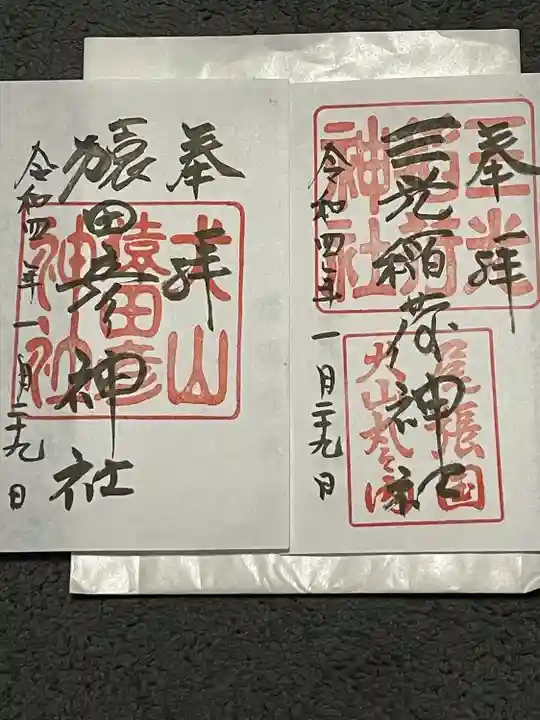 奉拝
三光稲荷神社
令和四年一月二十九日
三光
稲荷
神社
尾張国
犬山丸之内
奉拝
猿田彦神社
令和四年一月二十九日
犬山
猿田彦
神社